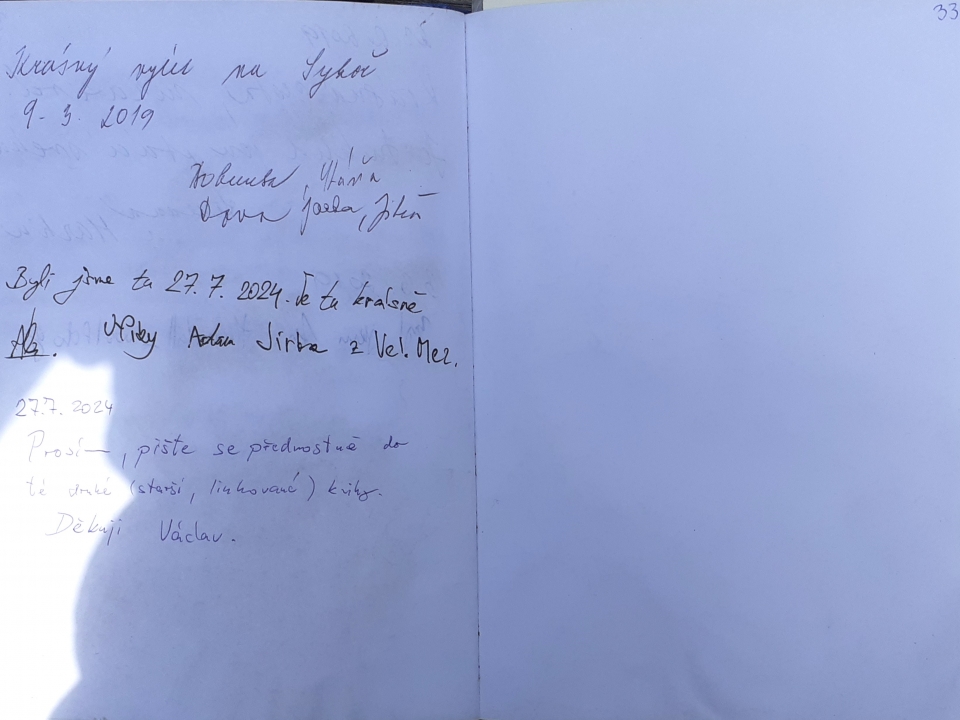 33
Krásný výlet na Sykoř
9. 3. 2019
Bohunka,
Dana,
Byli jsme tu 27. 7. 2024. Je tu krásně
Niky Adam Jirka z Vel. Mez.
27.7. 2024
Prosím, pište se přednostně do
té druhé (starší, linkované) knihy.
Děkuji Václav.